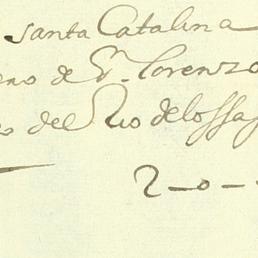 santa Catalina
eno de Sn. lorenzo
del Rio delossa
2-0-